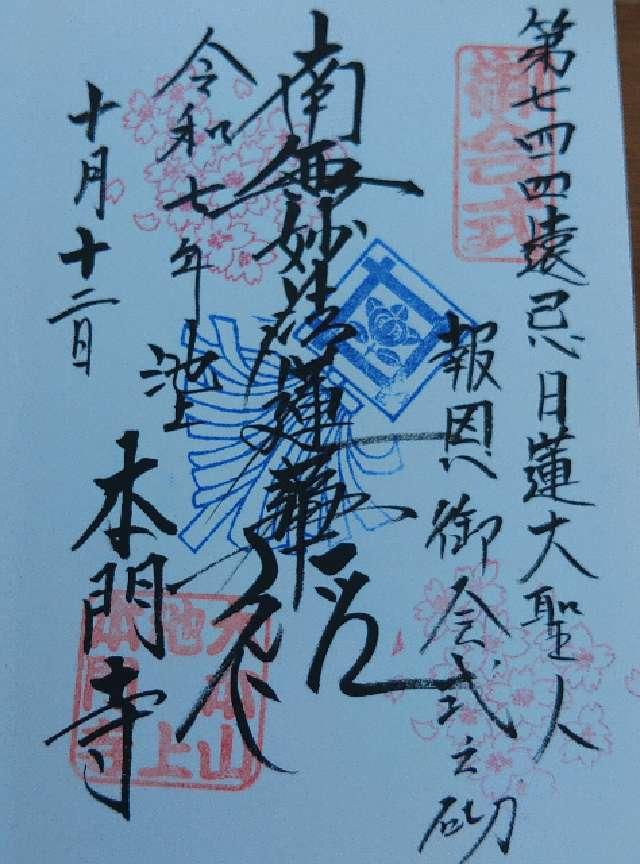 第七四四遠忌日蓮大聖人
報恩御会式之砌
御会式
南無妙法蓮華経
令和七年
十月十二日
池上
本門寺
大本山
池上
本門寺